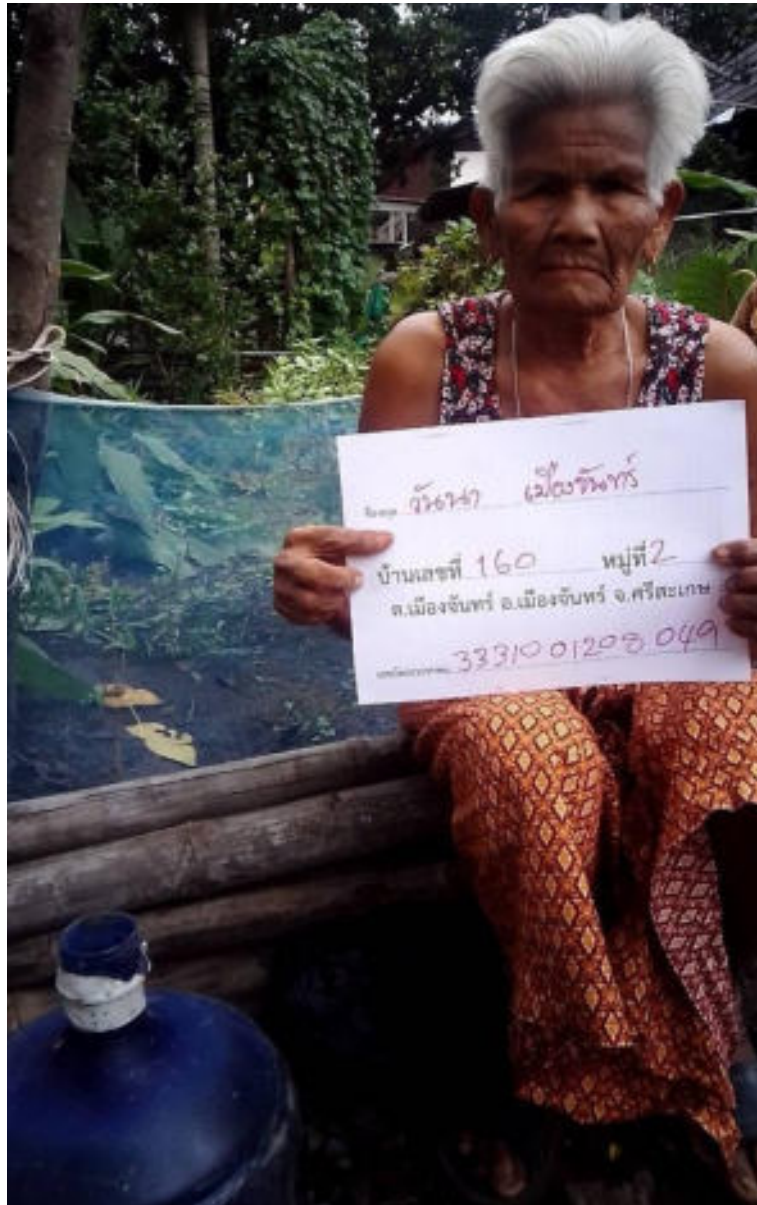 ชื่อ-สกุล วันนา เมืองจันทร์
บ้านเลขที่ 160 หมู่ที่ 2
ต.เมืองจันทร์ อ.เมืองจันทร์ จ.ศรีสะเกษ
33310 01208 049